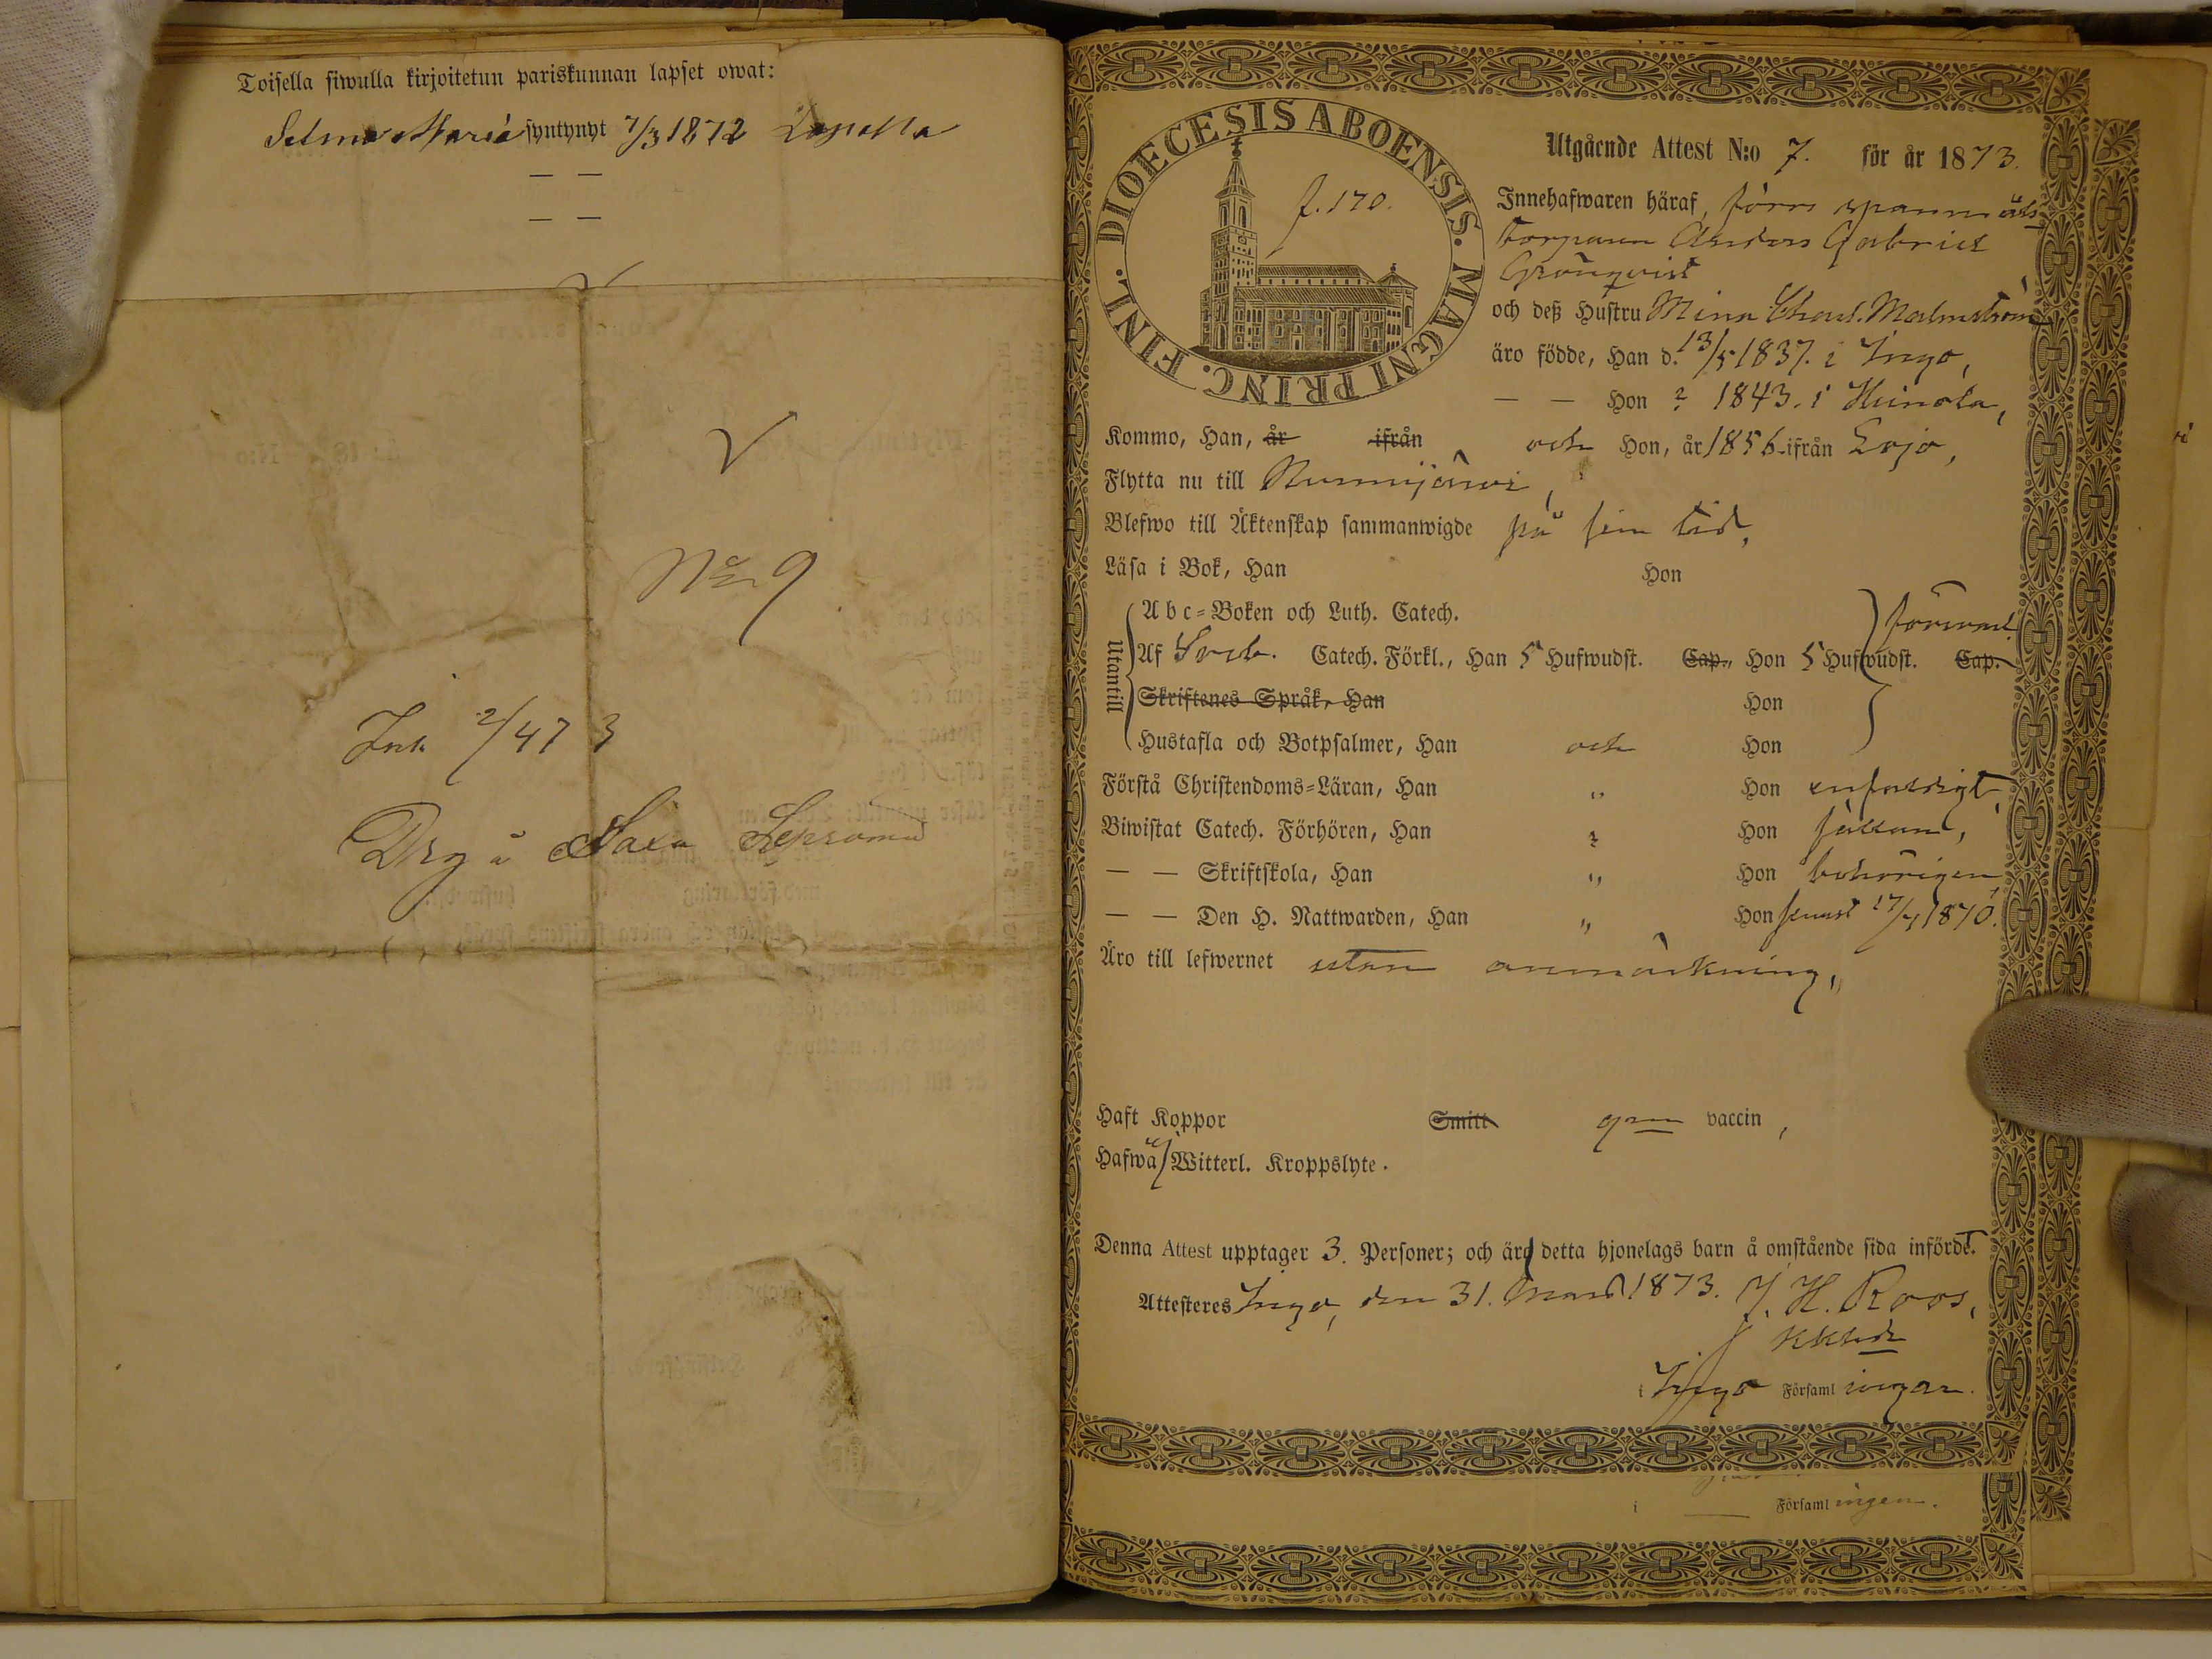 Toisella siwulla kirjoitetun pariskunnan lapset owat:
Selma Maria syntynyt 7/3 1872 Lopella
— —
— —
No 9
Ink 2/4 73
Drg å Saxa
DIOECESIS ABOENSIS. MAGNI PRINC. FINL.
f. 170.
Utgående Attest N:o 7. för år 1873.
Innehafwaren häraf, förre spanmåls
torparen Anders Gabriel
Grönqvist
och deß Hustru Mina Charl. Malmström
äro födde, Han d. 13/5 1837. i Ingo,
— — Hon ? 1843. i Heinola,
Kommo, Han, år ifrån och Hon, år 1856 ifrån Lojo,
Flytta nu till Nurmijärvi,
Blefwo till Äktenskap sammanwigde på sin tid,
Läsa i Bok, Han Hon
Utantill
Abc-Boken och Luth. Catech.
Af Sveb. Catech. Förkl., Han 5 Hufwudst. Cap., Hon 5 Hufwudst. Cap.
förswarl.
Skriftenes Språk, Han Hon
Hustafla och Botpsalmer, Han och Hon
Förstå Christendoms-Läran, Han " Hon enfaldigt,
Biwistat Catech. Förhören, Han Hon sällan,
— — Skriftskola, Han " Hon behörigen,
— — Den H. Nattwarden, Han " Hon senast 17/4 1870.
Äro till lefwernet utan anmärkning,
Haft Koppor Smitt gm vaccin,
Hafwa ej Witterl. Kroppslyte.
Denna Attest upptager 3. Personer; och äro detta hjonelags barn å omstående sida införde.
Attesteres Ingo, den 31. Mars 1873. J. H. Roos,
i Ingo Församlingar.
i — Församlingen.